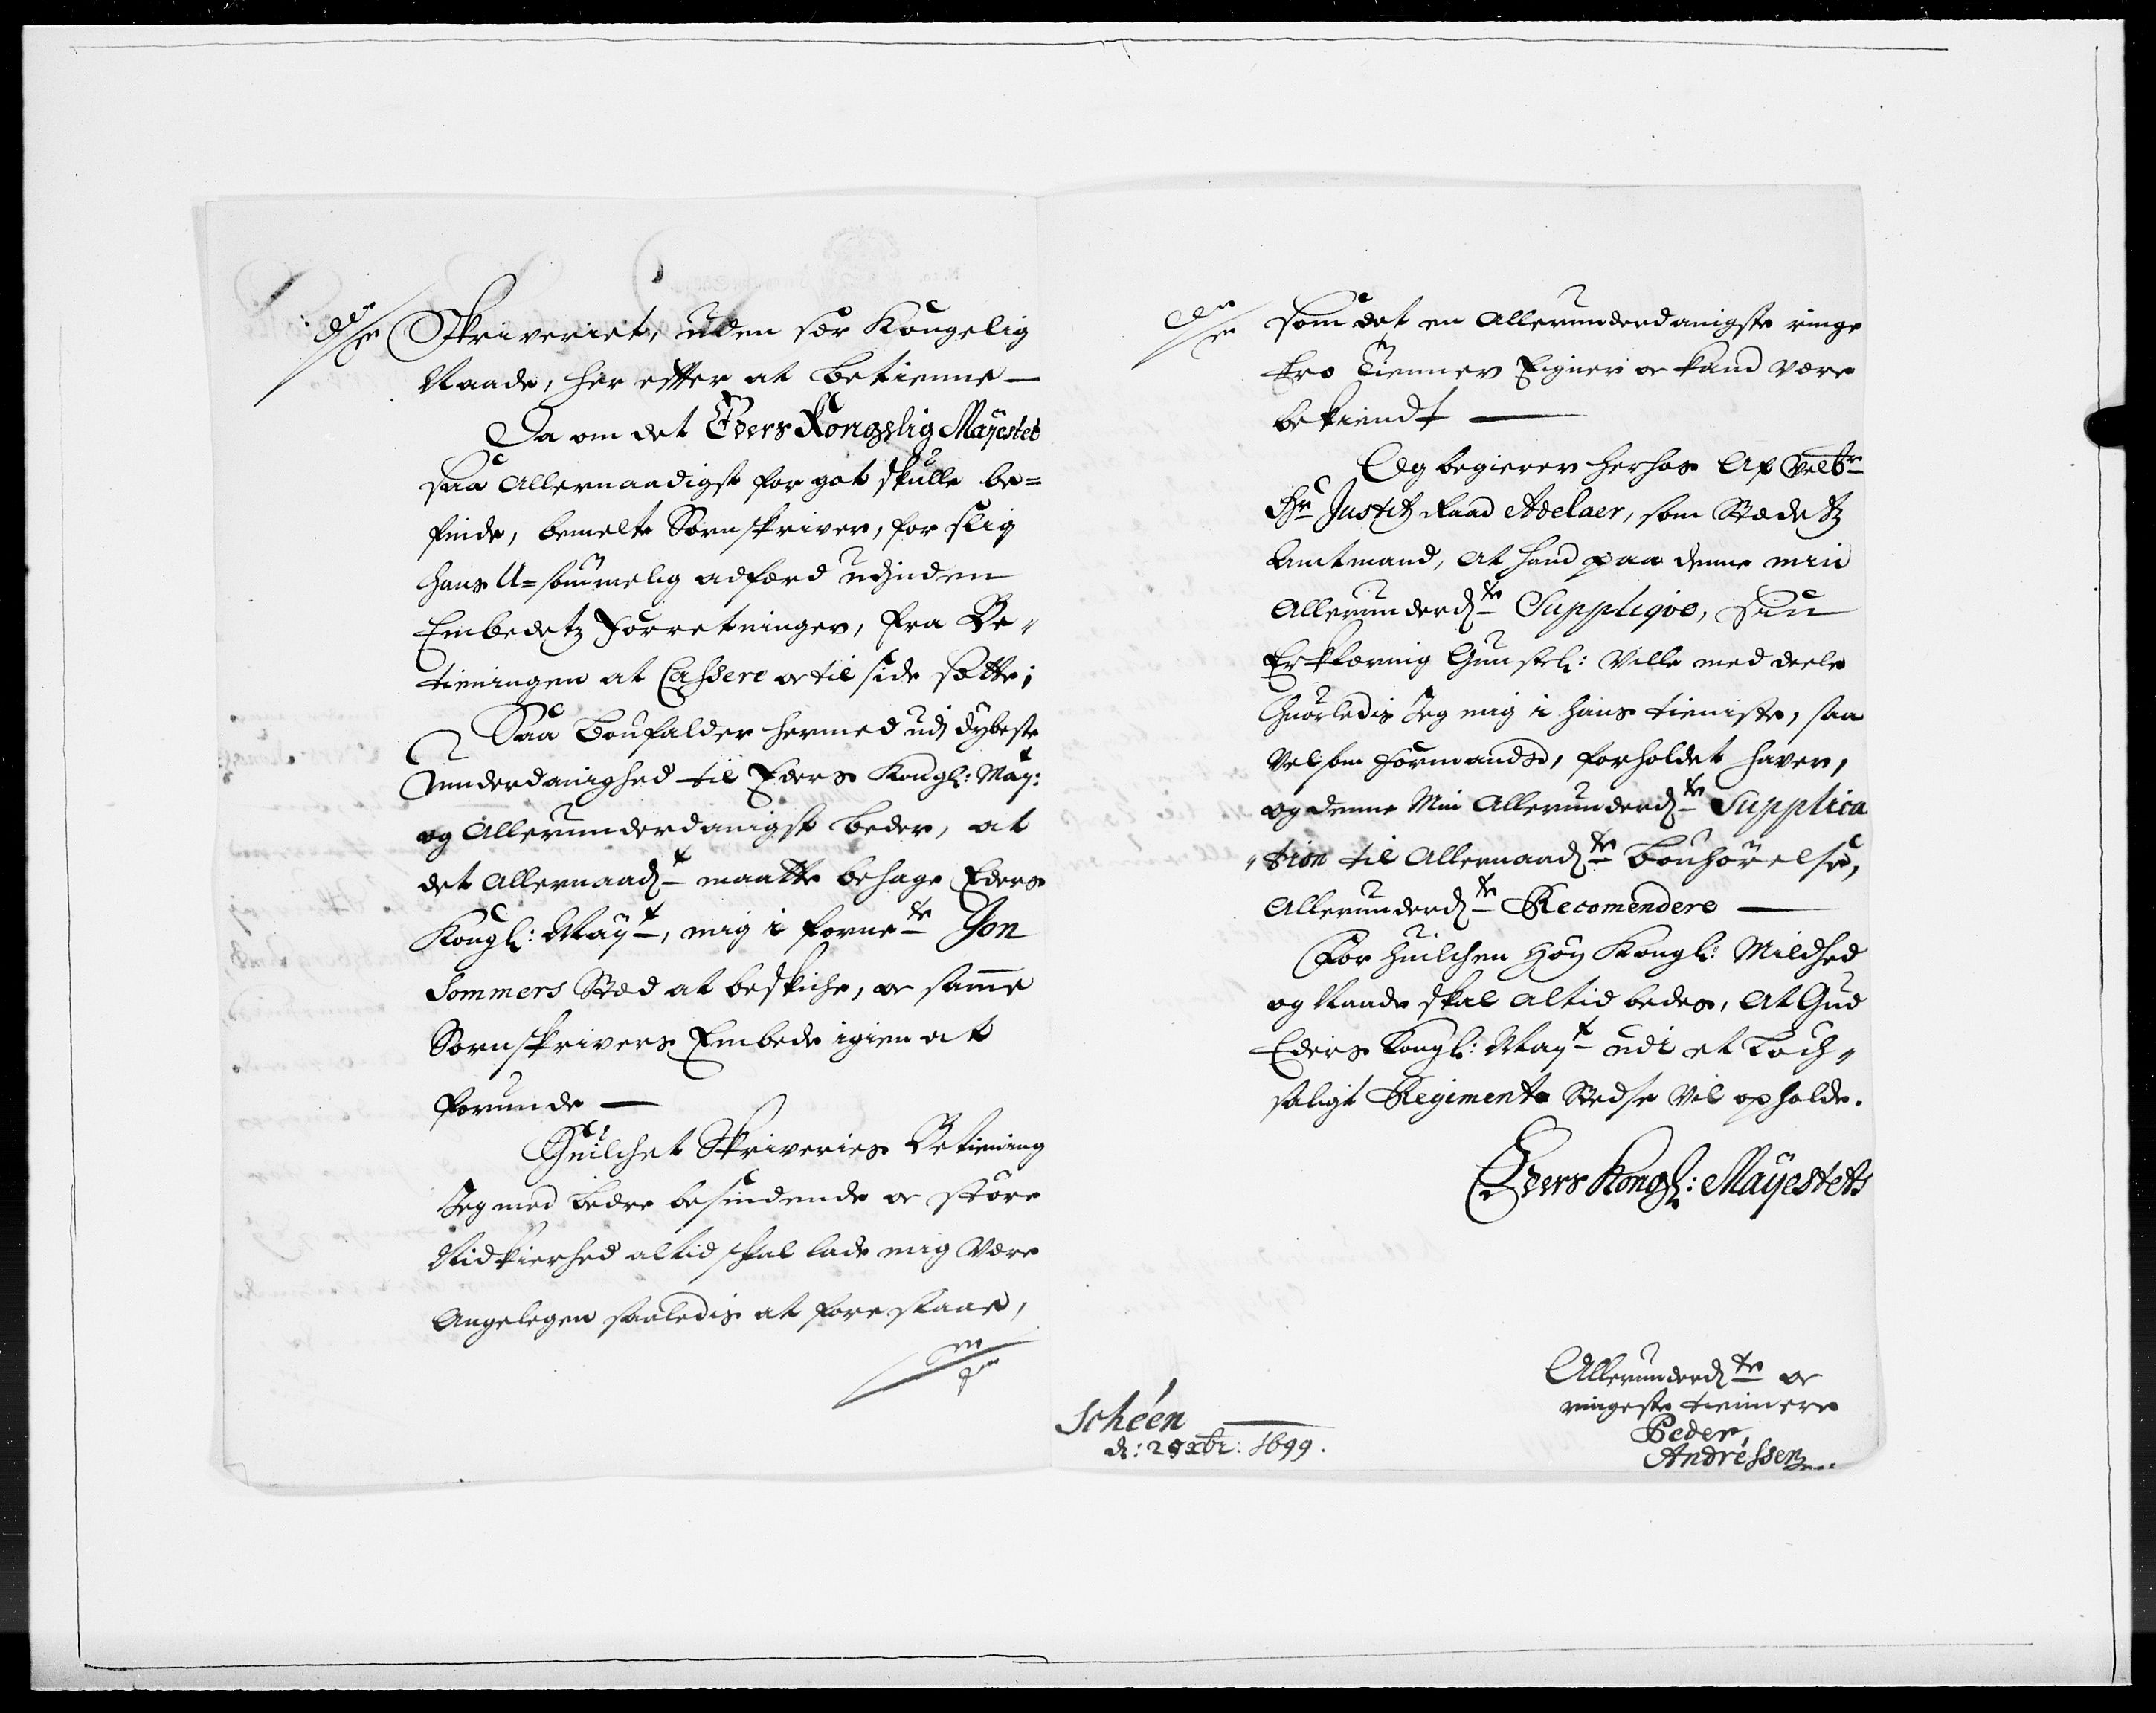 Skriveriet, uden sær Kongelig
Naade, her effter at betienne
Da om det Eders Kongelig Mayestet
saa Allernaadigst for got skulle be=
finde, bemelte Sornskriver, for slig
hans U=sømmelig adfærd udj inden
Embedetz Forretninger, fra Be„
tieningen at Cassere oc til side sætte;
Saa bønfalder hermed udj dybeste
underdanighed til Eders Kongl: May:t
og Allerunderdanigst beder, at
det Allernaad:st maatte behage Eders
Kongl: Mayt, mig i forne:te Jon
Sommers Sted at beskiche, oc samme
Sornskrivers Embede igien at
forunde
Huilchet Skriveries Betiening
Jeg med bedre besindende oc større
Nidkierhed altid skal lade mig være
Angelegen saaledis at forestaae,
som det en Allerunderdanigste ringe
tro Tienner Eigner oc kand være
bekiendt
Og begierer herhos Af velb:r
Hr Justitz Raad Adelaer, som Stedetz
Amtmand, At hand paa denne min
Allerunderd:te Suppliqve, Sin
Erklæring Gunstel: Ville med deele
huorledis Jeg mig i hans tieniste, saa
vel som Formands, forholdet haver,
og denne Min Allerunderd:te Supplica
„tion til Allernaad:te Bønhørelse,
Allerunderd:te Recomendere
For huilchen Høy Kongl: Mildhed
og Naade skal altid bedes, At Gud
Eders Kongl: Mayt udi et Lóch„
saligt Regimente Stedse vil opholde.
Eders Kongl: Mayestets
Allerunderd:te oc
ringeste tiennere
Peder
Andréssen
Schéen
d: 25 xbr: 1699.